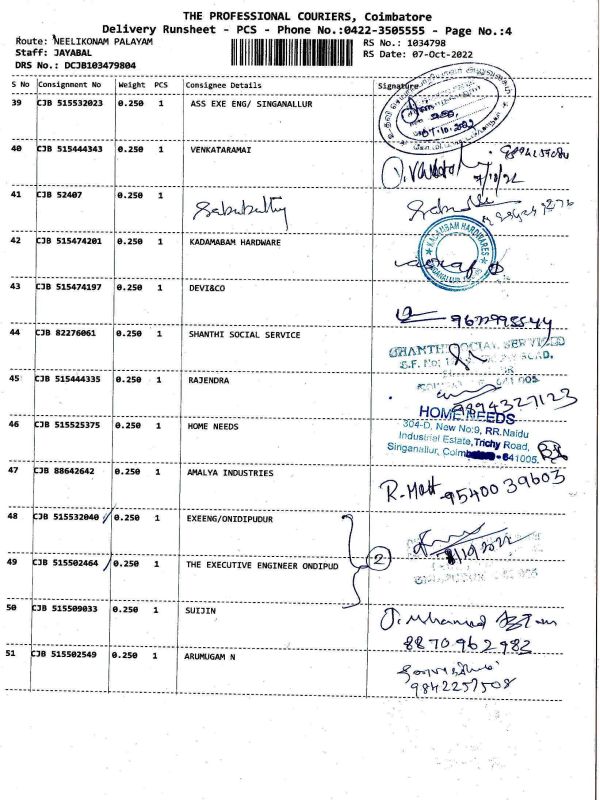 THE PROFESSIONAL COURIERS, Coimbatore
Delivery Runsheet - PCS - Phone No.:0422-3505555 - Page No.:4
Route: NEELIKONAM PALAYAM
Staff: JAYABAL
DRS No.: DCJB103479804
RS No.: 1034798
RS Date: 07-Oct-2022
S No Consignment No Weight PCS Consignee Details Signature
39 CJB 515532023 0.250 1 ASS EXE ENG/ SINGANALLUR
40 CJB 515444343 0.250 1 VENKATARAMAI
41 CJB 52407 0.250 1
42 CJB 515474201 0.250 1 KADAMABAM HARDWARE
KADAMBAM HARDWARES
43 CJB 515474197 0.250 1 DEVI&CO
44 CJB 82276061 0.250 1 SHANTHI SOCIAL SERVICE
SHANTHI SOCIAL SERVICES
45 CJB 515444335 0.250 1 RAJENDRA
9894327123
46 CJB 515525375 1 0.250 HOME NEEDS
HOME NEEDS
304-D, New No:9, RR.Naidu
Industrial Estate,Trichy Road,
Singanallur, Coimbatore - 641005.
47 CJB 88642642 0.250 1 AMALYA INDUSTRIES
9540039603
48 CJB 515532040 0.250 1 EXEENG/ONIDIPUDUR
2
49 CJB 515502464 0.250 1 THE EXECUTIVE ENGINEER ONDIPUD
50 CJB 515509033 0.250 1 SUIJIN
8870962982
51 CJB 515502549 0.250 1 ARUMUGAM N
9842257508